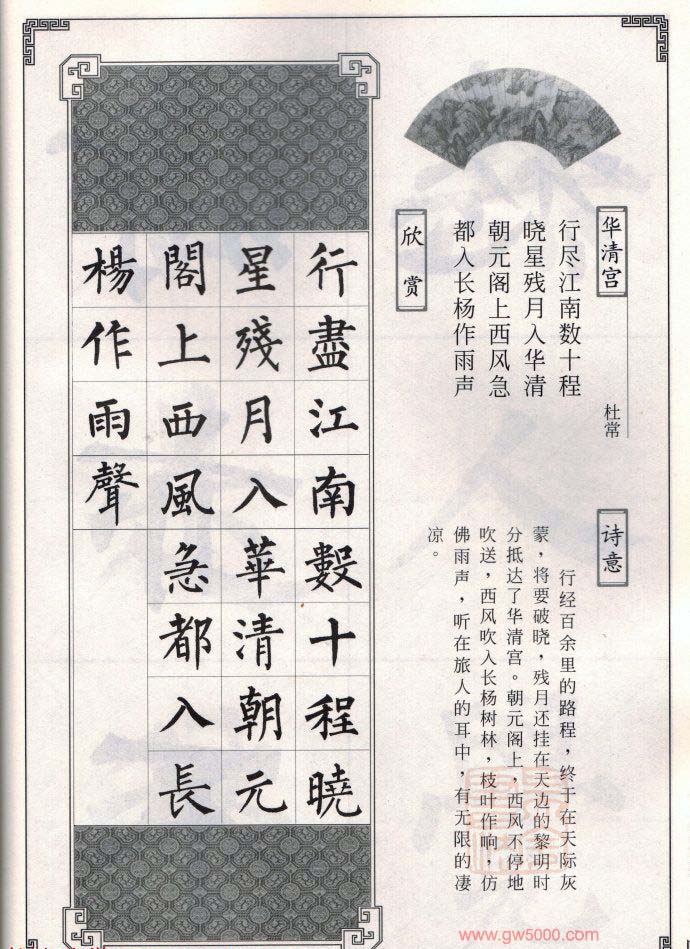 华清宫
杜常
行尽江南数十程
晓星残月入华清
朝元阁上西风急
都入长杨作雨声
诗意
行经百余里的路程，终于在天际灰
蒙，将要破晓，残月还挂在天边的黎明时
分抵达了华清宫。朝元阁上，西风不停地
吹送，西风吹入长杨树林，枝叶作响，仿
佛雨声，听在旅人的耳中，有无限的凄
凉。
欣赏
行盡江南數十程曉
星殘月入華清朝元
閣上西風急都入長
楊作雨聲
www.gw5000.com